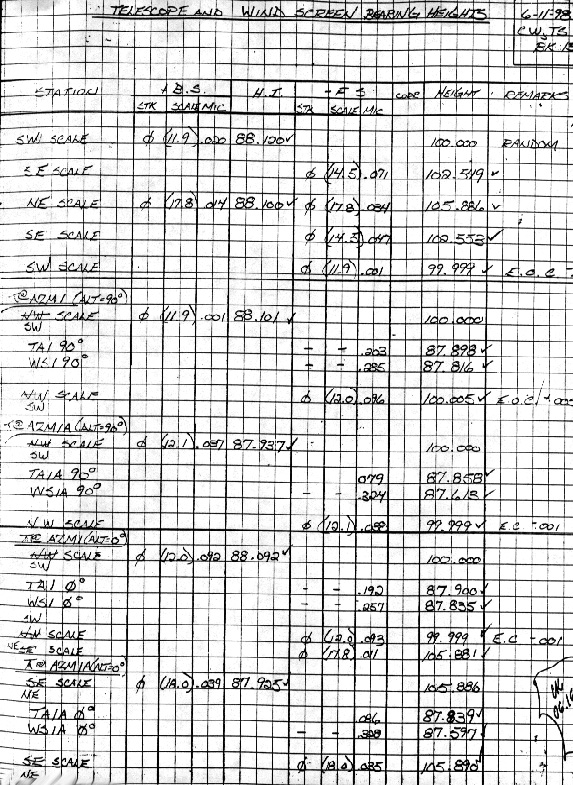 TELESCOPE AND WIND SCREEN BEARING HEIGHTS
6-11-98
CW, TS
BK 13
STATION + B.S. H.I. - F S CODE HEIGHT REMARKS
STK SCALE MIC STK SCALE MIC
SW SCALE φ (11.9) .020 88.120✓ 100.000 RANDOM
SE SCALE φ (14.5) .071 102.549 ✓
NE SCALE φ (17.8) .014 88.100✓ φ (17.8) .034 105.886 ✓
SE SCALE φ (14.5) .047 102.553 ✓
SW SCALE φ (11.9) .001 99.999 ✓ E.O.C -
T@ AZM1 (ALT=90°)
NW SCALE φ (11.9) .001 88.101 ✓ 100.000
SW
TA1 90° - - .203 87.898 ✓
WS1 90° - - .285 87.816 ✓
NW SCALE φ (12.0) .096 100.005 ✓ E.O.C.
SW
T@ AZM1A (ALT=90°)
NW SCALE φ (12.1) .037 87.937✓ 100.000
SW
TA1A 90° .079 87.858✓
WS1A 90° - - .324 87.613 ✓
NW SCALE φ (12.1) 99.999 ✓ E.C -.001
T@ AZM1 (ALT=0°)
NW SCALE φ (12.0) .092 88.092✓ 100.000
SW
TA1 φ° - - .192 87.900✓
WS1 φ° - - .257 87.835 ✓
SW
NW SCALE φ (12.0) .093 99.999 ✓ E.C -.001
NE SE SCALE φ (17.8) .011 105.881 ✓
T@ AZM1A (ALT=0°)
SE SCALE φ (18.0) .039 87.925✓ 105.886
NE
TA1A φ° .086 87.839✓
WS1A φ° - - .328 87.597✓
SE SCALE φ (18.0) .035 105.890✓
NE